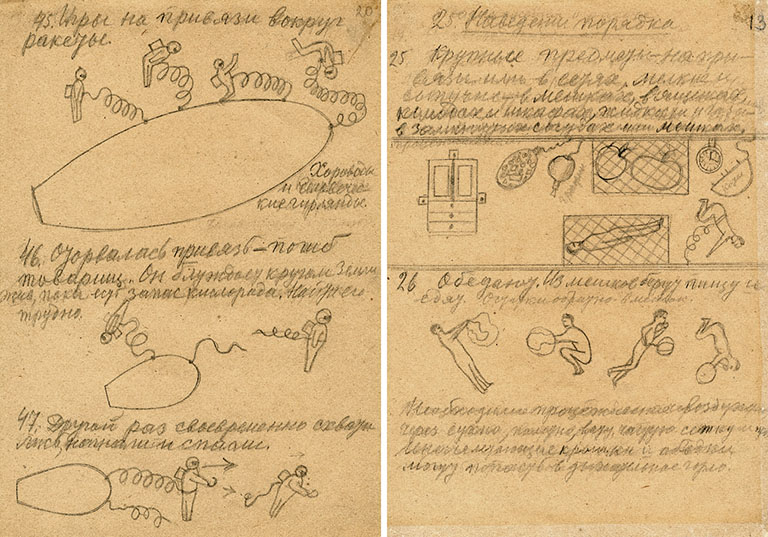 45. Игры на привязи вокруг
ракеты.
Хороводы
и
гирлянды
46. Оторвалась привязь – погиб
товарищ. Он блуждает кругом Земли
пока есть запас кислорода. Найти его
трудно.
47. Другой раз своевременно схвати
лись, нагнали и спасли.
13
25. Наведены порядка
25 Крупные предметы – на при-
вязи или в сетях, мелкие и
сыпучие – в мешках, в ящиках,
шкафах, жидкие и
в замкнутых сосудах или мешках,
26 Обедают. Из мешков берут пищу и
едят. обратно в мешок.
Необходимо процеживание воздуха
через сукно, воду, частую сетку и
крошки и
могут попасть в дыхательное горло